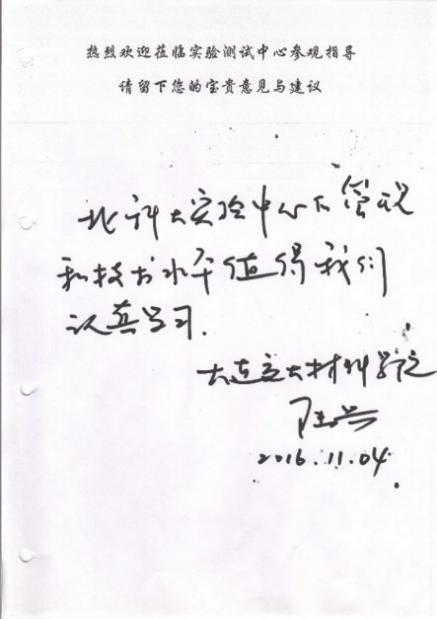 热烈欢迎莅临实验测试中心参观指导
请留下您的宝贵意见与建议
北科大实验中心的管理
和技术水平值得我们
认真学习.
大连交大材料学院
2016.11.04